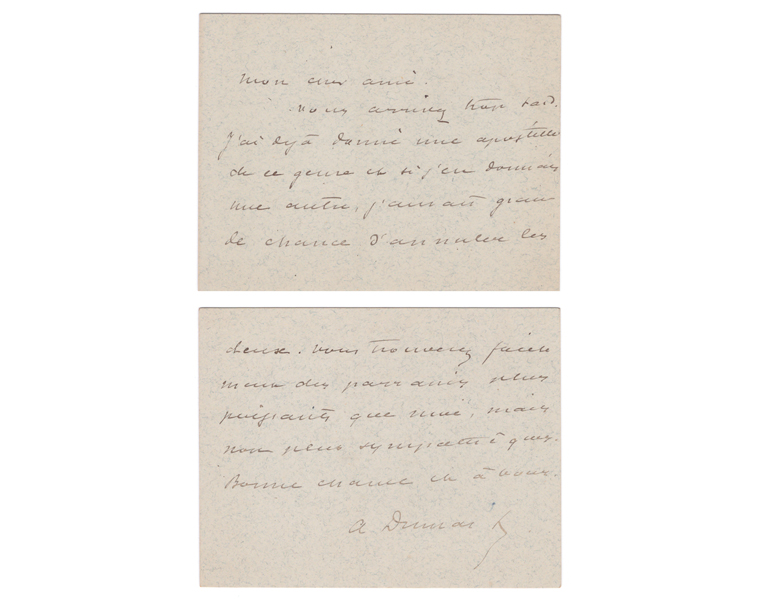 mon cher ami.
vous arrivez trop tard.
J'ai déjà donné une apostille
de ce genre et si j'en donnais
une autre, j'aurais gran
de chance d'annuler les
deux. vous trouverez facile
ment des parrains plus
puissants que moi, mais
non plus sympathiques.
Bonne chance et à vous.
A Dumas f